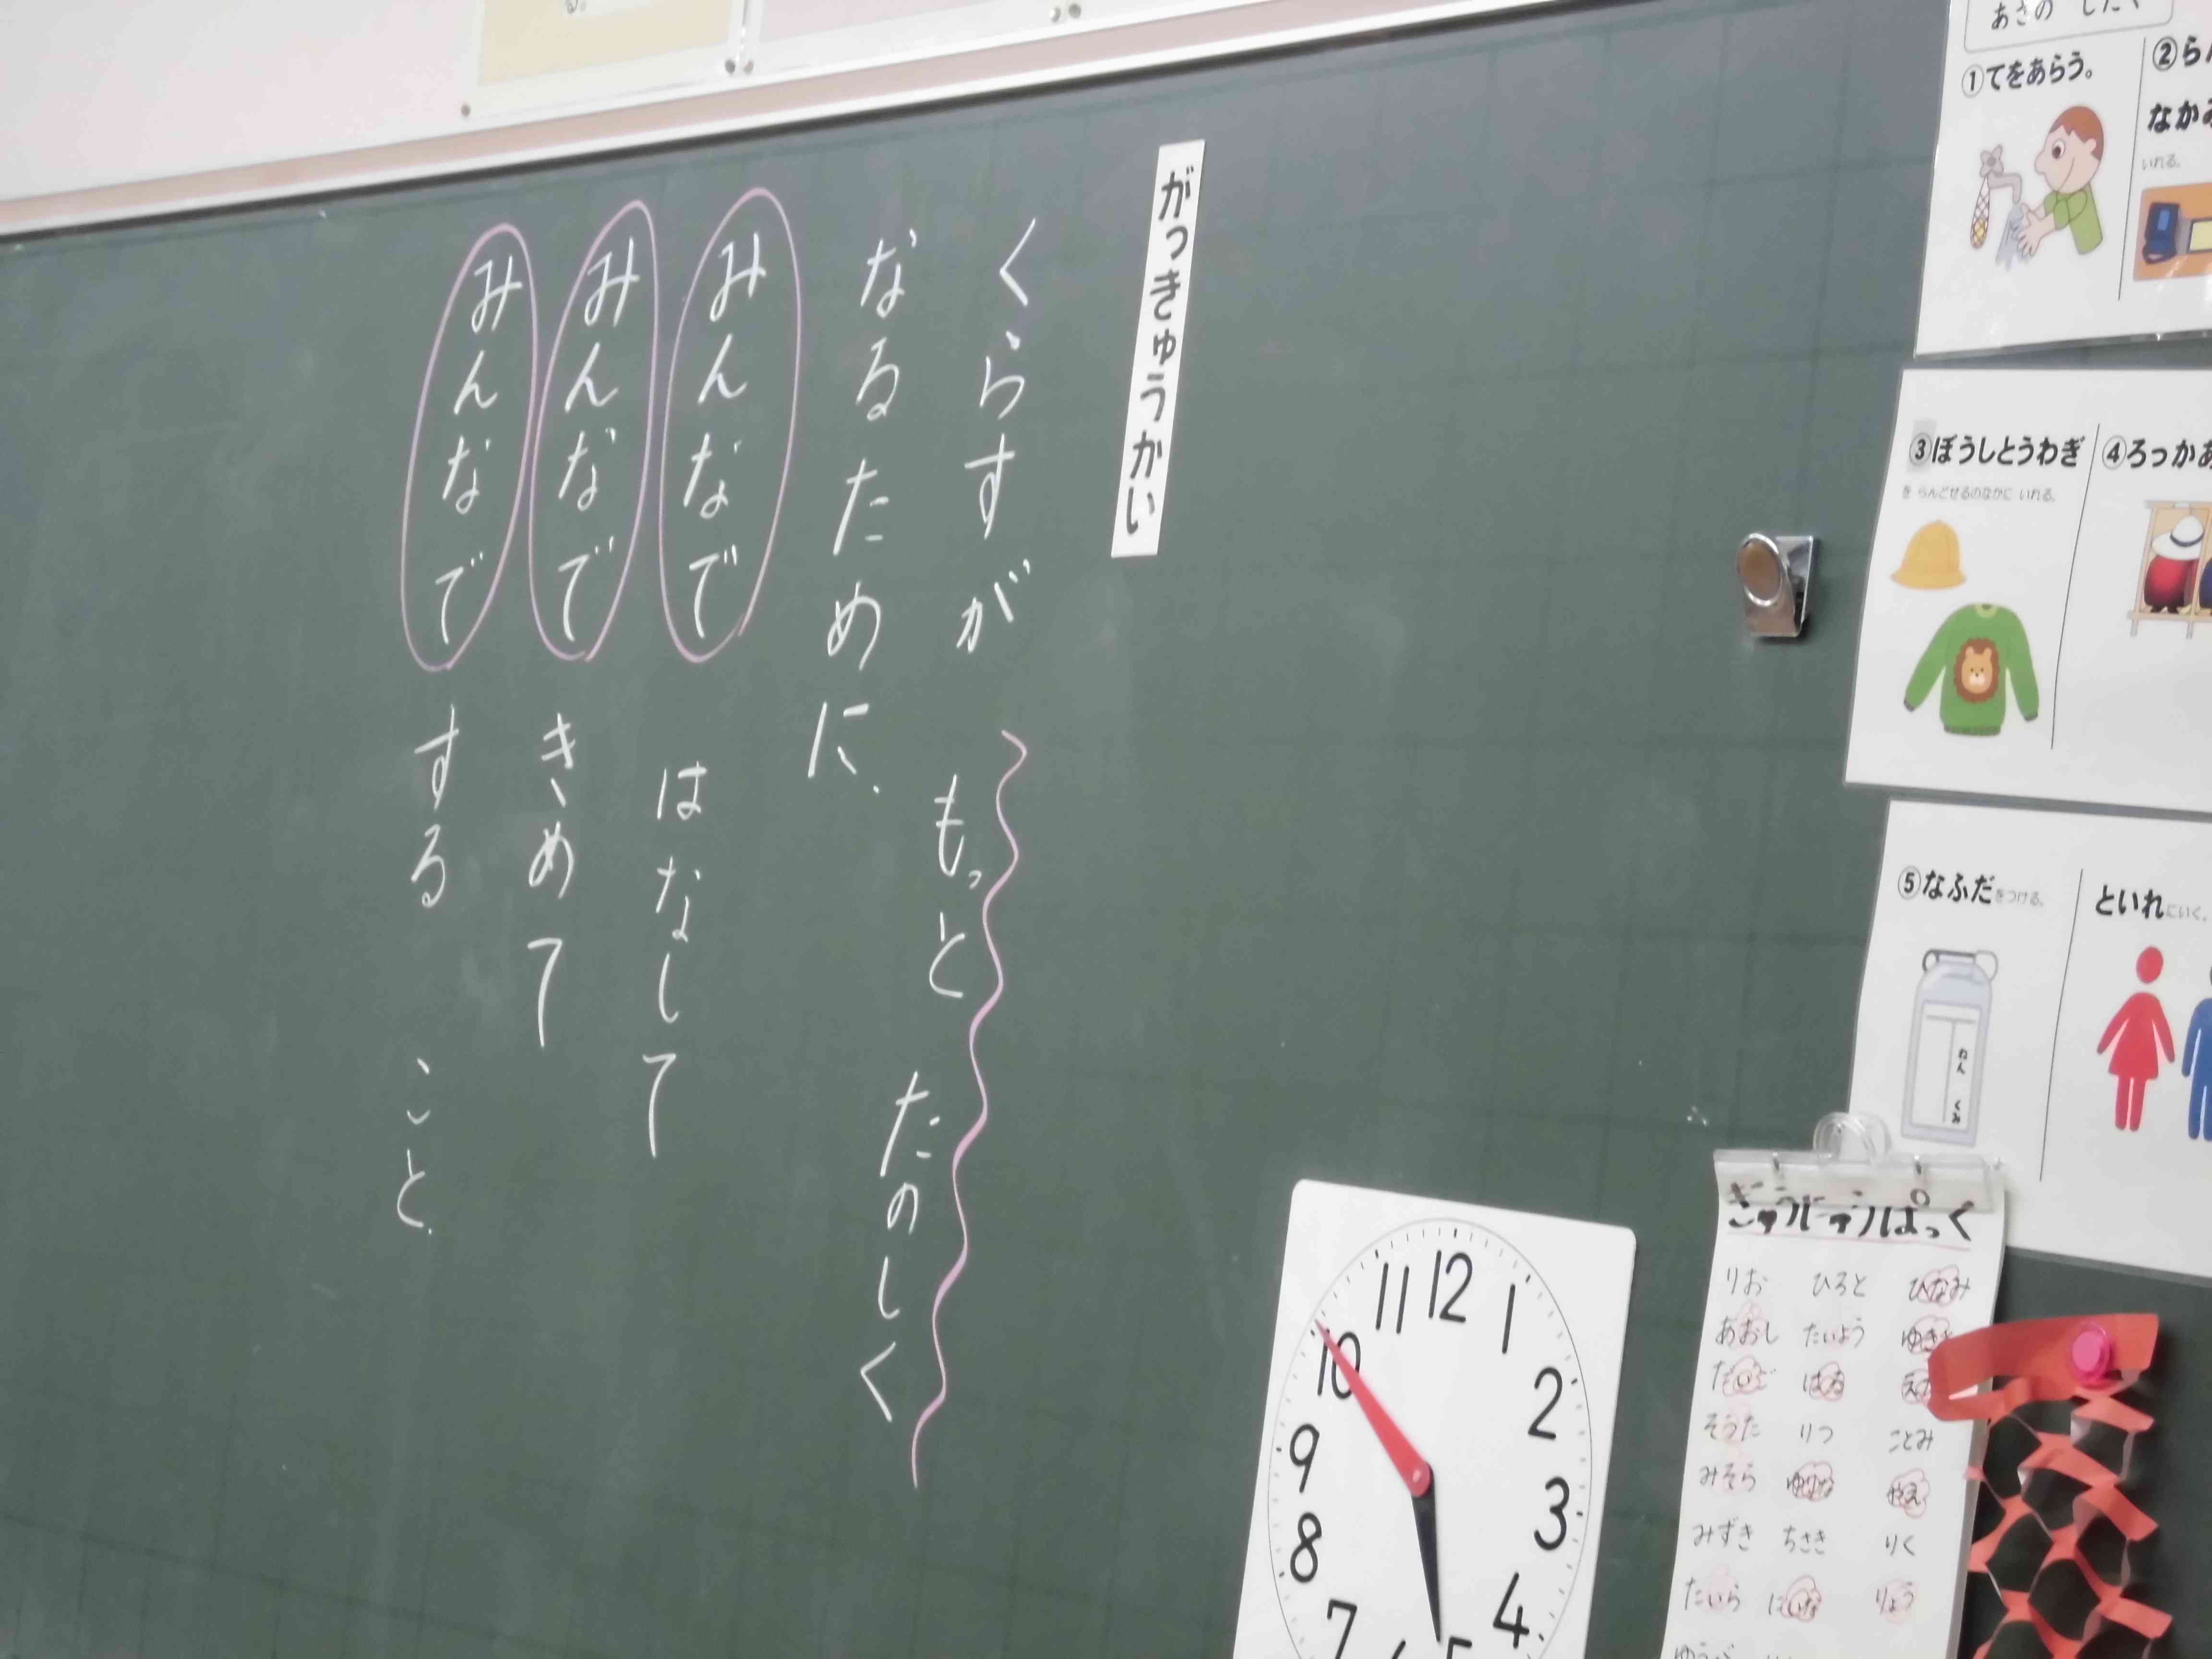 がっきゅうかい
くらすが もっと たのしく
なるために、
みんなで はなして
みんなで きめて
みんなで する こと
あさの したく
①てをあらう。
②ら
なかみ
いれる。
③ぼうしとうわぎ
を らんどせるのなかに いれる。
④ろっかあ
⑤なふだをつける。
といれにいく。
ねん くみ
ぎゅうにゅうぱっく
りお ひろと ひなみ
あおし たいよう
だいご はる
そうた りつ ことみ
みそら ゆりな やえ
みずき ちさき りく
たいら にいな りょう
12
1
2
3
4
5
7
8
9
10
11